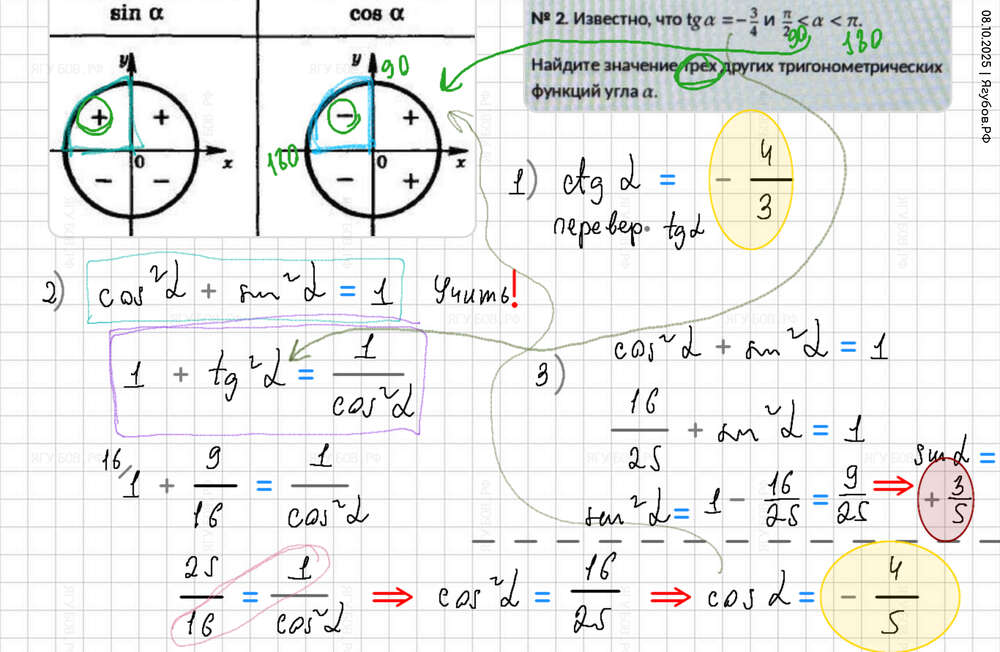 sin α
cos α
y
+
+
180
0
x
−
−
y
90
−
+
0
x
−
+
№ 2. Известно, что tg α = −3/4 и π/2 < α < π.
90 180
Найдите значение трех других тригонометрических
функций угла α.
08.10.2025 | Ягубов.РФ
1) ctg α = − 4/3
перевер. tg α
2) cos²α + sin²α = 1 Учить!
1 + tg²α = 1/cos²α
16/ 1 + 9/16 = 1/cos²α
25/16 = 1/cos²α ⇒ cos²α = 16/25 ⇒ cos α = − 4/5
3) cos²α + sin²α = 1
16/25 + sin²α = 1
sin²α = 1 − 16/25 = 9/25 ⇒ sin α = + 3/5